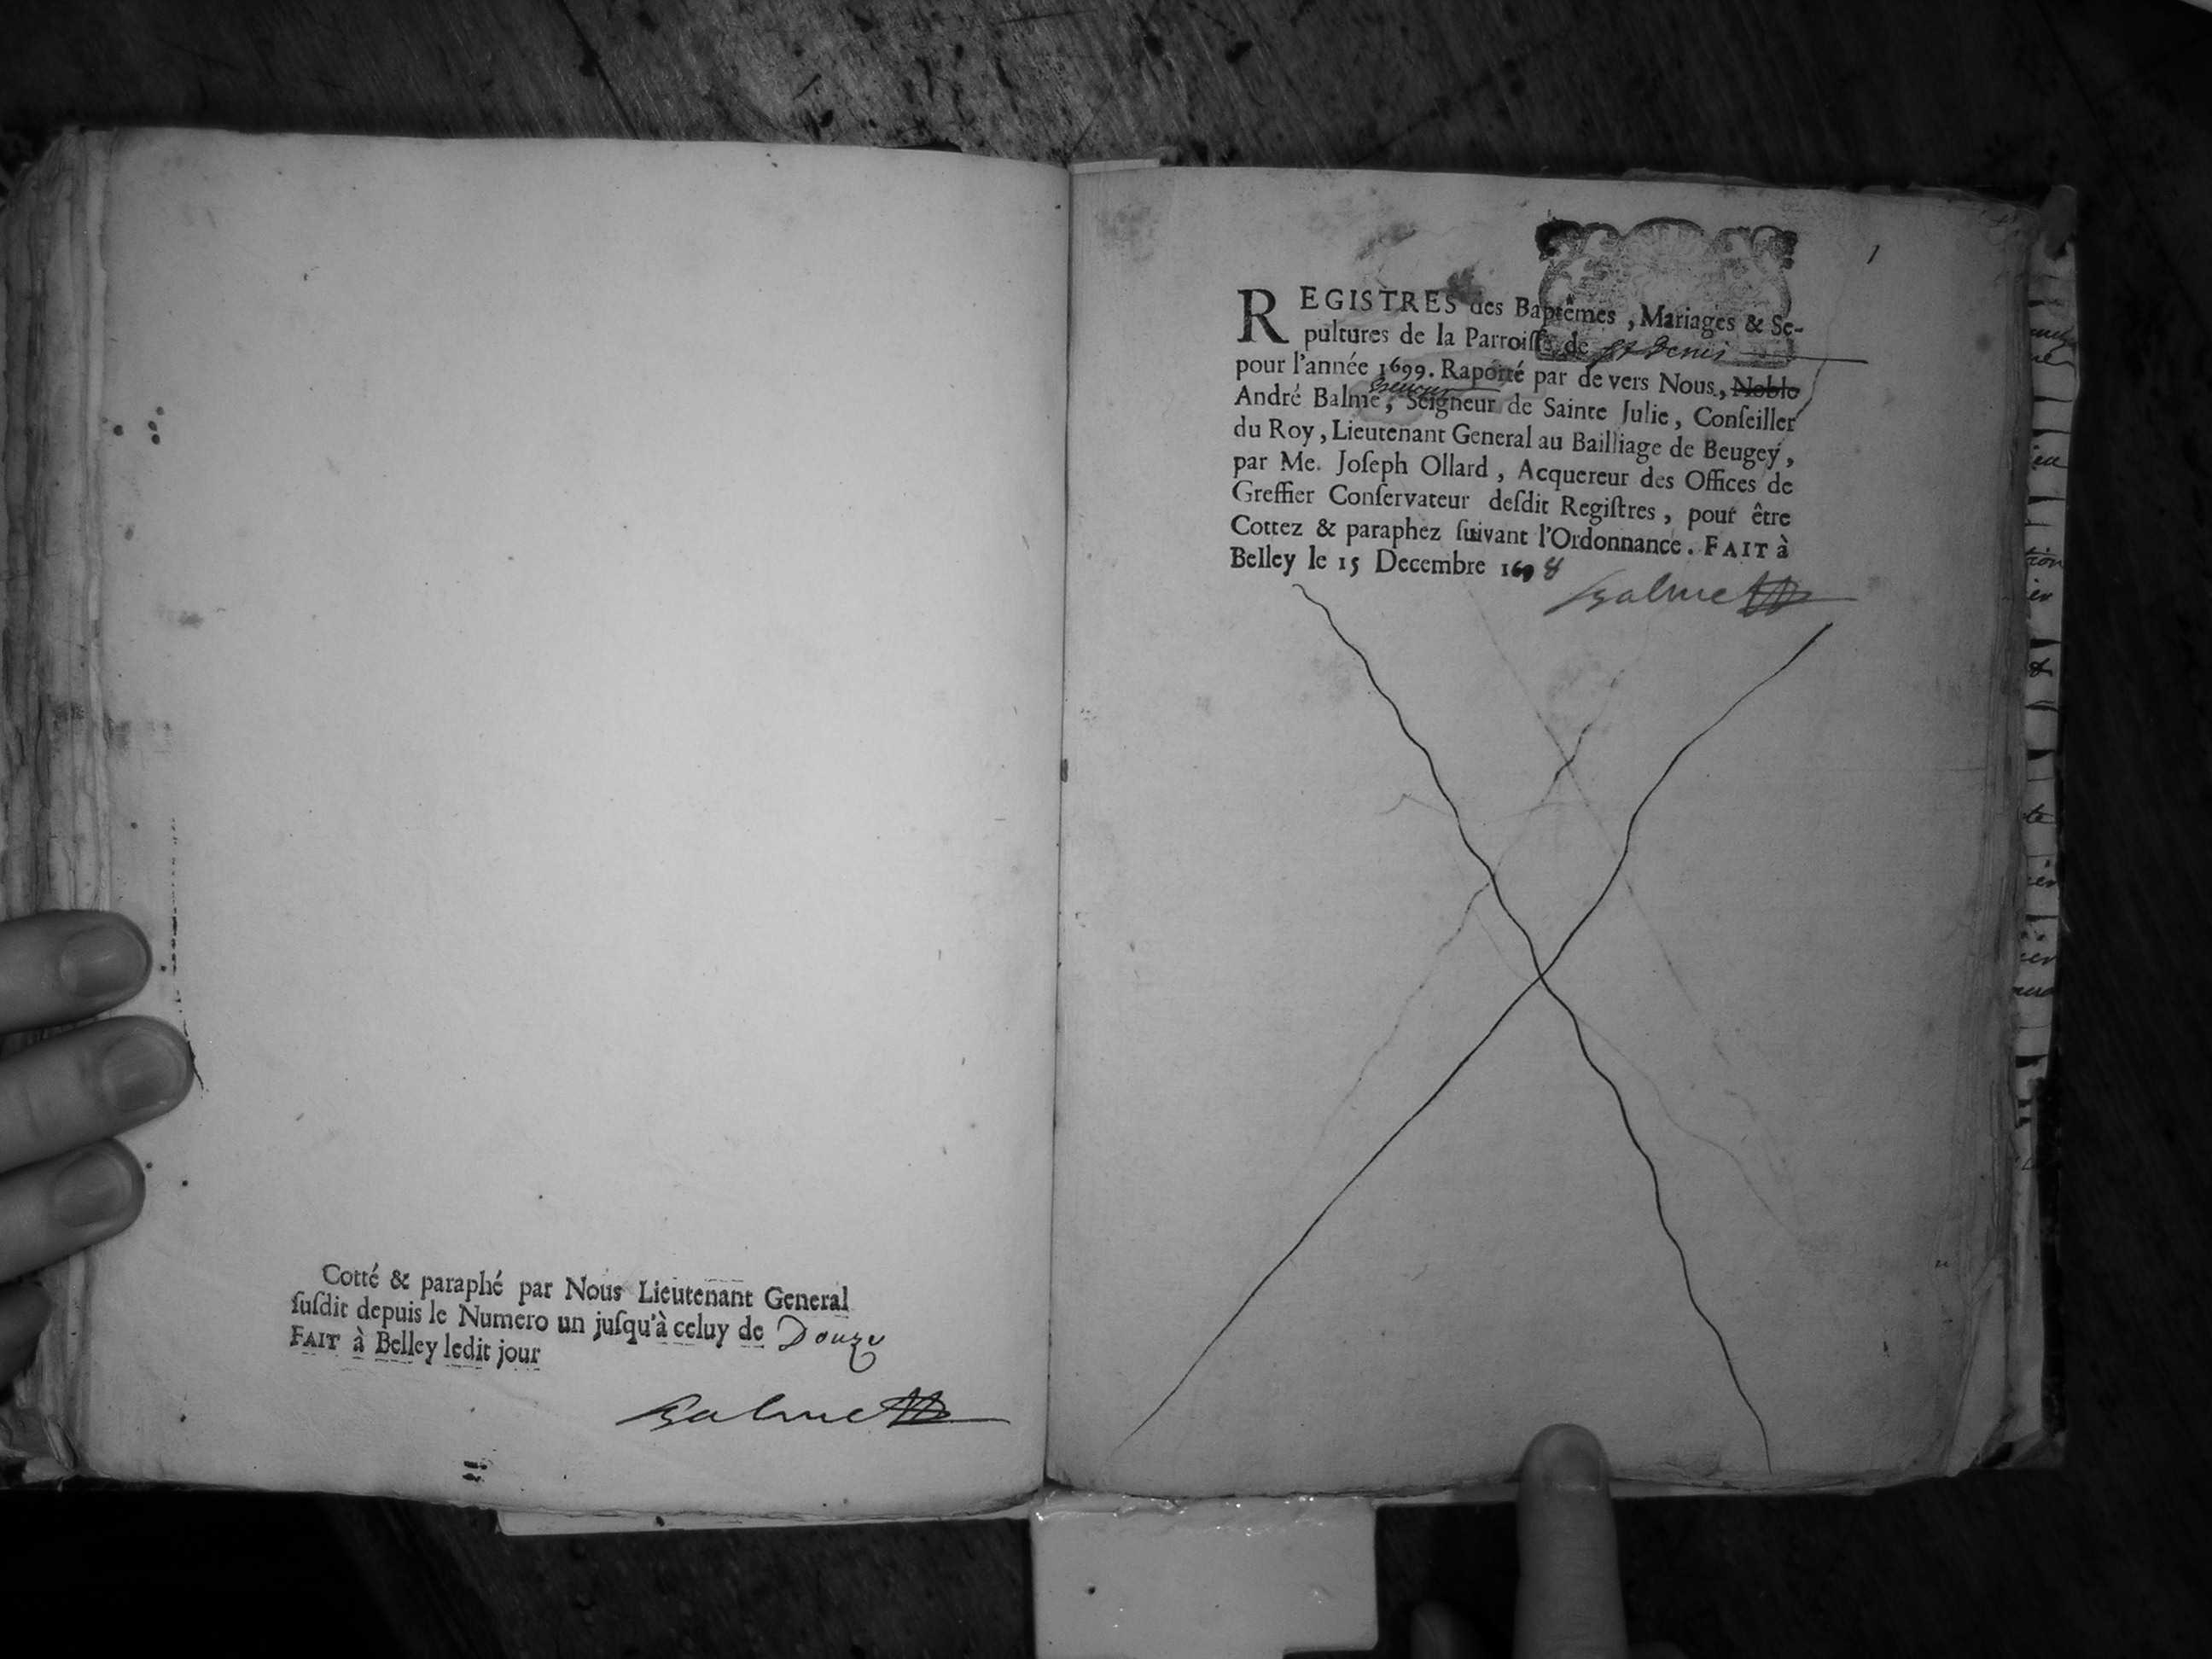 Cotté & paraphé par Nous Lieutenant General
ſuſdit depuis le Numero un juſqu'à celuy de Douze
FAIT à Belley ledit jour
Balme
1
REGISTRES des Baptêmes, Mariages & Se-
pultures de la Parroiſſe de St Denis
pour l'année 1699. Raporté par de vers Nous, Noble
André Balme, Seigneur de Sainte Julie, Conſeiller
du Roy, Lieutenant General au Bailliage de Beugey,
par Me. Joſeph Ollard, Acquereur des Offices de
Greffier Conſervateur deſdit Regiſtres, pour être
Cottez & paraphez ſuivant l'Ordonnance. FAIT à
Belley le 15 Decembre 1698
Balme